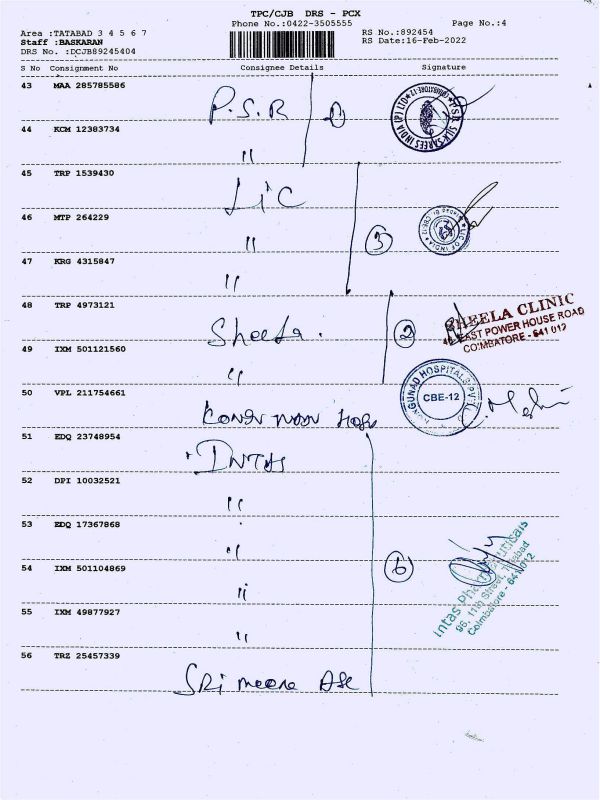 TPC/CJB DRS - PCX
Phone No.:0422-3505555 Page No.:4
Area :TATABAD 3 4 5 6 7 RS No.:892454
Staff :BASKARAN RS Date:16-Feb-2022
DRS No. :DCJB89245404
S No Consignment No Consignee Details Signature
43 MAA 285785586
P.S.R
44 KCM 12383734
"
45 TRP 1539430
LIC
46 MTP 264229
" 3
47 KRG 4315847
"
48 TRP 4973121
Sheela. 2
49 IXM 501121560
"
50 VPL 211754661
51 EDQ 23748954
INTAS
52 DPI 10032521
"
53 EDQ 17367868
"
54 IXM 501104869
" 6
55 IXM 49877927
"
56 TRZ 25457339
Sri meena
P.S.R. SILK SAREES INDIA (P) LTD
LIC OF INDIA
SHEELA CLINIC
EAST POWER HOUSE ROAD
COIMBATORE - 641 012
HOSPITALS
CBE-12
Intas Pharmaceuticals
96, 11th Street, Tatabad
Coimbatore - 641 012